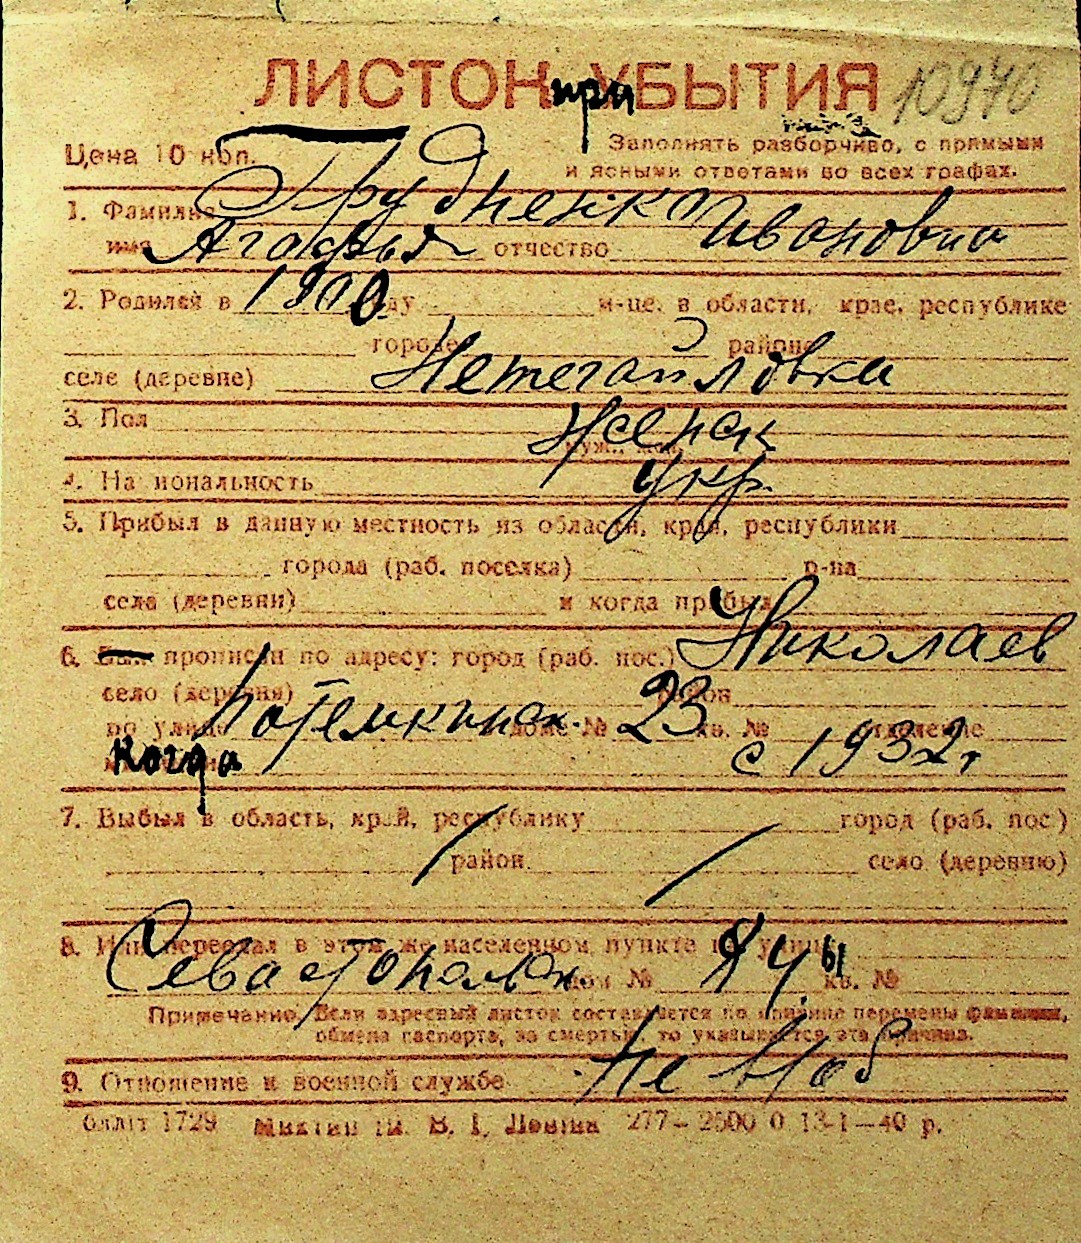 ЛИСТОК при УБЫТИЯ 10970
Цена 10 коп.
Заполнять разборчиво, с прямыми
и ясными ответами во всех графах.
1. Фамилия Грудненко
имя Агафья отчество Ивановна
2. Родился в 1900 году м-це, в области, крае, республике
городе районе
селе (деревне) Нетегайловка
3. Пол Женск
муж., жен.
4. Национальность укр.
5. Прибыл в данную местность из области, края, республики
города (раб. поселка) р-на
села (деревни) и когда прибыл
6. Был прописан по адресу: город (раб. пос.) Николаев
село (деревня) район
по улице Потемкинск. доме № 23 кв. № отделение
когда с 1932 г
7. Выбыл в область, край, республику город (раб. пос.)
район село (деревню)
8. Или переехал в этом же населенном пункте по улице
Севастопольск дом № кв. №
Примечание. Если адресный листок составляется по причине перемены фамилии,
обмена паспорта, за смертью, то указывается эта причина.
9. Отношение к военной службе не воб
277—2500 0 13-1—40 р.